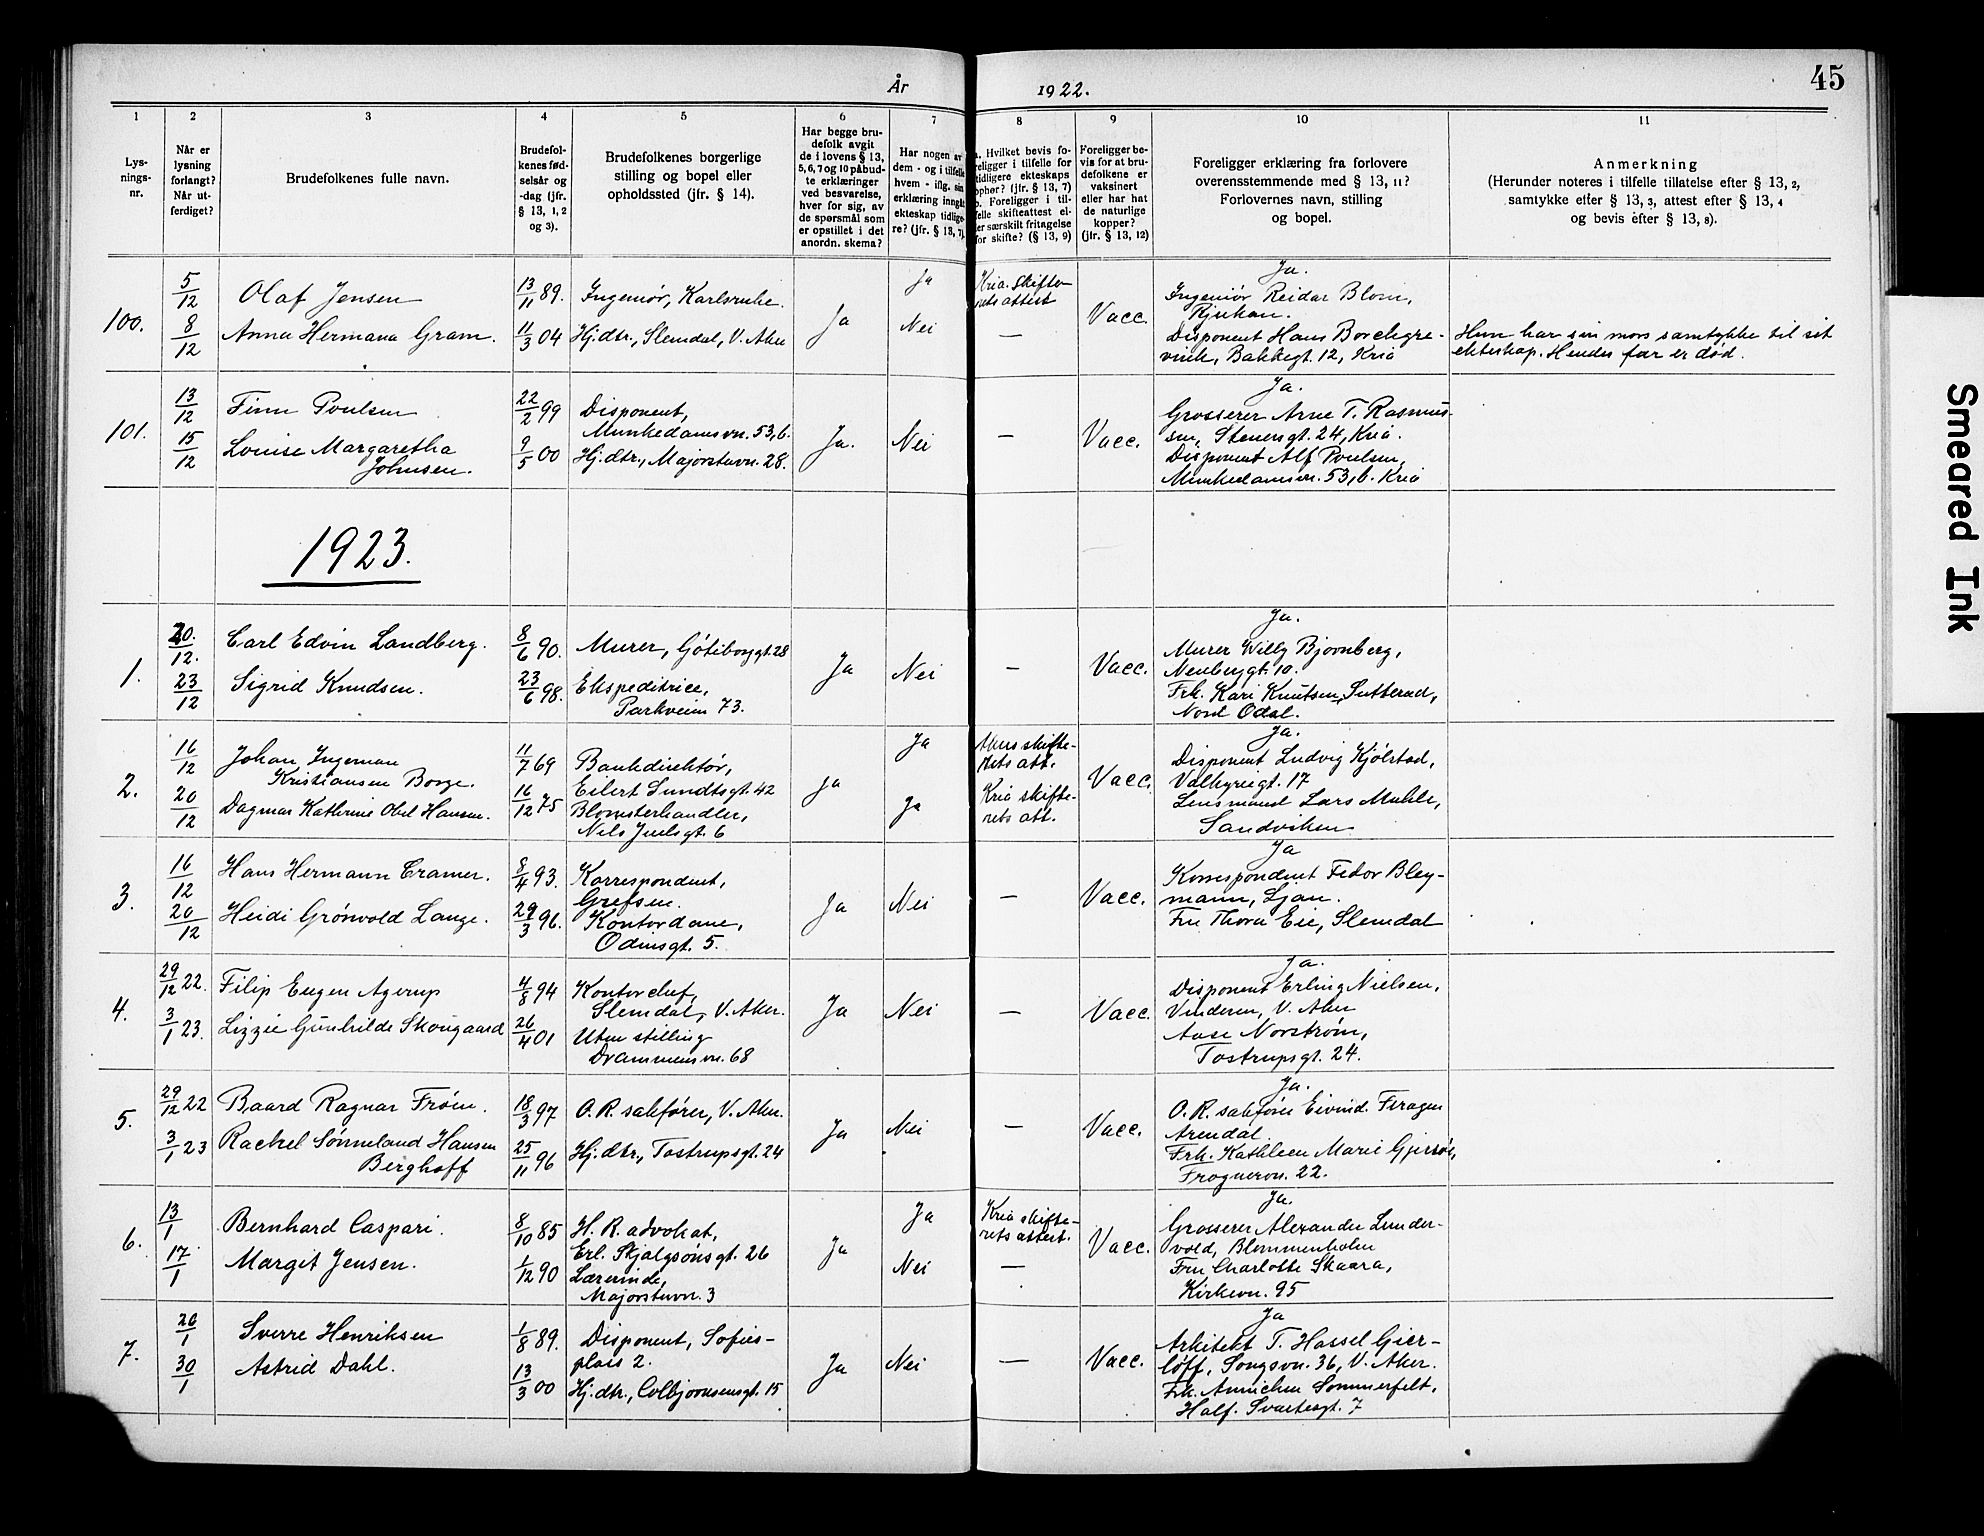 År 1922.
45
1 2 3 4 5 6 7 8 9 10 11
Lys-
nings-
nr.
Når er
lysning
forlangt?
Når ut-
ferdiget?
Brudefolkenes fulle navn.
Brudefol-
kenes fød-
selsår og
-dag (jfr.
§ 13, 1, 2
og 3).
Brudefolkenes borgerlige
stilling og bopel eller
opholdssted (jfr. § 14).
Har begge bru-
defolk avgit
de i lovens § 13,
5, 6, 7 og 10 påbud-
te erklæringer
ved besvarelse,
hver for sig, av
de spørsmål som
er opstillet i det
anordn. skema?
Har nogen av
dem - og i tilfelle
hvem - iflg. sin
erklæring inngåt
ekteskap tidlige-
re? (jfr. § 13, 7).
a. Hvilket bevis fo-
religger i tilfelle for
tidligere ekteskaps
ophør? (jfr. § 13, 7)
b. Foreligger i til-
felle skifteattest el-
ler særskilt fritagelse
for skifte? (§ 13, 9)
Foreligger be-
vis for at bru-
defolkene er
vaksinert
eller har hat
de naturlige
kopper?
(jfr. § 13, 12)
Foreligger erklæring fra forlovere
overensstemmende med § 13, 11?
Forlovernes navn, stilling
og bopel.
Anmerkning
(Herunder noteres i tilfelle tillatelse efter § 13, 2,
samtykke efter § 13, 3, attest efter § 13, 4
og bevis efter § 13, 8).
100.
5/12
8/12
Olaf Jensen
Anna Hermana Gram.
13/11 89.
11/3 04
Ingeniør, Karlsruhe.
Hj.dtr., Slemdal, V. Aker
Ja
Ja
Nei
Kria. Skifte-
rets attest
—
Vacc.
Ja.
Ingeniør Reidar Blom,
Rjukan.
Disponent Hans Borchgre-
vink, Bakkegt. 12, Kria
Hun har sin mors samtykke til sit
ekteskap. Hendes far er død.
101.
13/12
15/12
Finn Poulsen
Louise Margaretha
Johnsen.
22/2 99
9/5 00
Disponent,
Munkedamsvn. 53, b.
Hj.dtr., Majorstuvn. 28.
Ja.
Nei
—
Vacc.
Ja.
Grosserer Arne T. Rasmus-
sen, Stenersgt. 24, Kria.
Disponent Alf Poulsen,
Munkedamsvn. 53, b. Kria
1923.
1.
20./12.
23/12
Carl Edvin Landberg.
Sigrid Knudsen.
8/6 90.
23/6 98.
Murer, Göteborggt. 28
Ekspeditrice,
Parkveien 73.
Ja
Nei
—
Vacc.
Ja.
Murer Willy Bjørnberg,
Neuberggt. 10.
Frk. Kari Knutsen, Sutterud,
Nord Odal.
2.
16/12
20/12
Johan Ingeman
Kristiansen Borge.
Dagmar Kathrine Obel Hansen.
11/7 69
16/12 75
Bankdirektør,
Eilert Sundtsgt. 42
Blomsterhandler,
Nils Juelsgt. 6
Ja
Ja
Ja
Akers skifte-
rets att.
Kria skifte-
rets att.
Vacc.
Ja.
Disponent Ludvig Kjølstad,
Valkyriegt. 17
Lensmand Lars Muhle,
Sandviken
3.
16/12
20/12
Hans Hermann Cramer.
Heidi Grønvold Lange.
8/4 93.
29/3 96.
Korrespondent,
Grefsen.
Kontordame,
Odinsgt. 5.
Ja
Nei
—
Vacc.
Ja
Korrespondent Fedor Bley-
mann, Ljan.
Fru Thora Eie, Slemdal
4.
29/12 22.
3/1 23.
Filip Eugen Agerup
Lizzie Gunhilde Skougaard
4/8 94
26/4 01
Kontorchef,
Slemdal, V. Aker.
Uten stilling
Drammensvn. 68
Ja
Nei
—
Vacc.
Ja.
Disponent Erling Nielsen,
Vinderen, V. Aker
Aase Norstrøm,
Tostrupsgt. 24.
5.
29/12 22
3/1 23
Baard Ragnar Frøen.
Rachel Sønneland Hansen
Berghoff
18/3 97
25/11 96
O. R. sakfører, V. Aker.
Hj.dtr., Tostrupsgt. 24
Ja
Nei
—
Vacc.
Ja.
O. R. sakfører Eivind
Arendal
Frk. Kathleen Marie
Frognervn. 22.
6.
13/1
17/1
Bernhard Caspari.
Margit Jensen.
8/10 85
1/12 90
H. R. advokat,
Erl. Skjalgsønsgt. 26
Lærerinde,
Majorstuvn. 3
Ja
Ja
Nei
Kria skifte-
rets attest.
—
Vacc.
Ja.
Grosserer Alexander Lunder-
vold, Blommenholm
Fru Charlotte Skaara,
Kirkevn. 95
7.
26/1
30/1
Sverre Henriksen
Astrid Dahl.
1/8 89.
13/3 00
Disponent, Sofies-
plass 2.
Hj.dtr., Colbjørnsensgt. 15
Ja
Nei
—
Vacc.
Ja
Arkitekt T. Hassel Gier-
løff, Songsvn. 36, V. Aker.
Frk. Annichen Sommerfelt,
Half. Svartesgt. 7
Smeared Ink